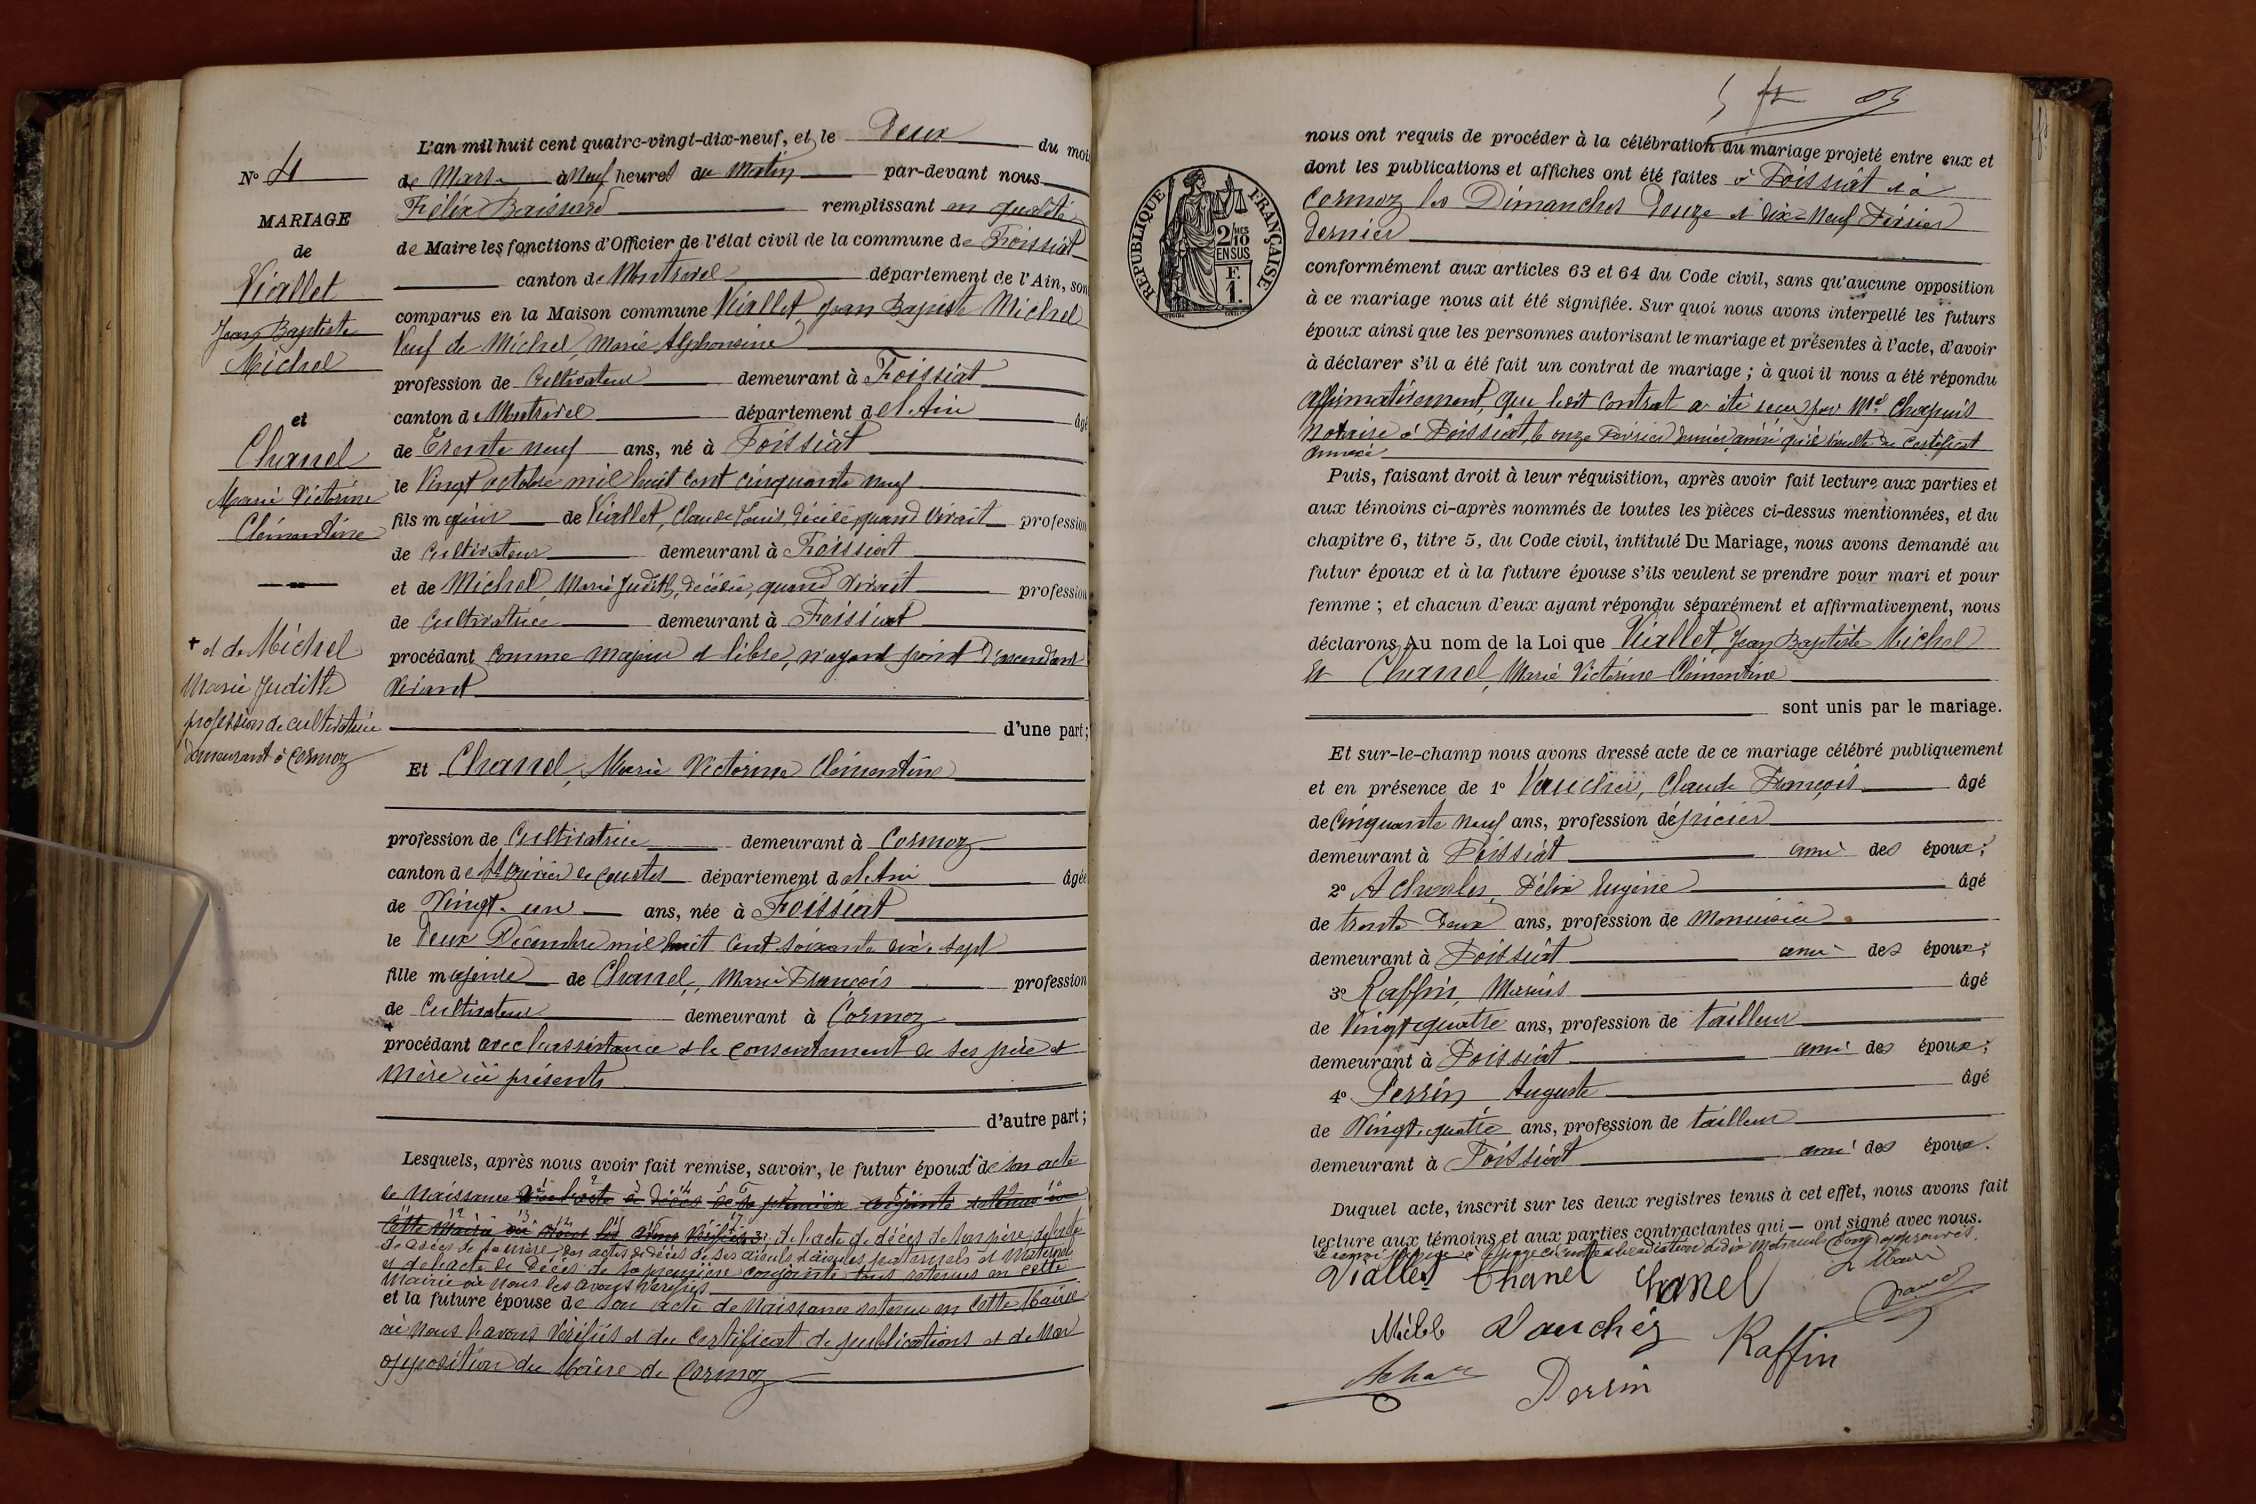 N° 4
MARIAGE
de
Viallet
Jean Baptiste
Michel
et
Chanel
Marie Victorine
Clémentine
+ et de Michel
Marie Judith
profession de cultivatrice
demeurant à Cormoz
L'an mil huit cent quatre-vingt-dix-neuf, et le Deux du mois
de Mars à Neuf heures du Matin par-devant nous
Félix remplissant en qualité
de Maire les fonctions d'Officier de l'état civil de la commune de Foissiat
canton de Montrevel département de l'Ain, sont
comparus en la Maison commune Viallet Jean Baptiste Michel
Veuf de Michel, Marie Alphonsine
profession de Cultivateur demeurant à Foissiat
canton de Montrevel département de l'Ain âgé
de Trente neuf ans, né à Foissiat
le Vingt octobre mil huit cent cinquante neuf
fils majeur de Viallet, Claude Louis, décédé, quand vivait profession
de Cultivateur demeurant à Foissiat
et de Michel, Marie Judith, décédée, quand vivait profession
de Cultivatrice demeurant à Foissiat
procédant comme majeur et libre, n'ayant point d'ascendant
vivant
d'une part;
Et Chanel, Marie Victorine Clémentine
profession de Cultivatrice demeurant à Cormoz
canton de St Trivier de Courtes département de l'Ain âgée
de Vingt-un ans, née à Foissiat
le deux Décembre mil huit cent soixante dix-sept
fille majeure de Chanel, Marie François profession
de Cultivateur demeurant à Cormoz
+
procédant avec l'assistance et le consentement de ses père et
mère ici présents
d'autre part;
Lesquels, après nous avoir fait remise, savoir, le futur époux de son acte
de Naissance de l'acte de décès de sa première conjointe retenus en
cette Mairie où Nous les avons vérifiés, de l'acte de décès de son père, de l'acte
de décès de sa mère, des actes de décès de ses aïeuls et aïeules paternels et maternels
et de l'acte de décès de sa première conjointe tous retenus en cette
Mairie où Nous les avons vérifiés
et la future épouse de son acte de Naissance retenu en cette Mairie
où Nous l'avons vérifié et du certificat de publications et de Non
opposition du Maire de Cormoz
nous ont requis de procéder à la célébration du mariage projeté entre eux et
dont les publications et affiches ont été faites à Foissiat et à
Cormoz les Dimanches Douze et dix-Neuf Février
dernier
REPUBLIQUE FRANÇAISE
2/10
EN SUS
F.
1.
conformément aux articles 63 et 64 du Code civil, sans qu'aucune opposition
à ce mariage nous ait été signifiée. Sur quoi nous avons interpellé les futurs
époux ainsi que les personnes autorisant le mariage et présentes à l'acte, d'avoir
à déclarer s'il a été fait un contrat de mariage; à quoi il nous a été répondu
affirmativement, que ledit contrat a été reçu par Me Chapuis
Notaire à Foissiat le onze Février dernier ainsi qu'il résulte du certificat
annexé
Puis, faisant droit à leur réquisition, après avoir fait lecture aux parties et
aux témoins ci-après nommés de toutes les pièces ci-dessus mentionnées, et du
chapitre 6, titre 5, du Code civil, intitulé Du Mariage, nous avons demandé au
futur époux et à la future épouse s'ils veulent se prendre pour mari et pour
femme; et chacun d'eux ayant répondu séparément et affirmativement, nous
déclarons, Au nom de la Loi que Viallet, Jean Baptiste Michel
Et Chanel, Marie Victorine Clémentine
sont unis par le mariage.
Et sur-le-champ nous avons dressé acte de ce mariage célébré publiquement
et en présence de 1° Vaucher, Claude François âgé
de Cinquante Neuf ans, profession d'épicier
demeurant à Foissiat ami des époux;
2° Félix Eugène âgé
de trente Deux ans, profession de Menuisier
demeurant à Foissiat ami des époux;
3° Raffin, Marius âgé
de Vingt-quatre ans, profession de tailleur
demeurant à Foissiat ami des époux;
4° Perrin Auguste âgé
de Vingt-quatre ans, profession de tailleur
demeurant à Foissiat ami des époux.
Duquel acte, inscrit sur les deux registres tenus à cet effet, nous avons fait
lecture aux témoins et aux parties contractantes qui — ont signé avec nous.
Viallet Chanel Chanel Le Maire
Vaucher Raffin
Perrin